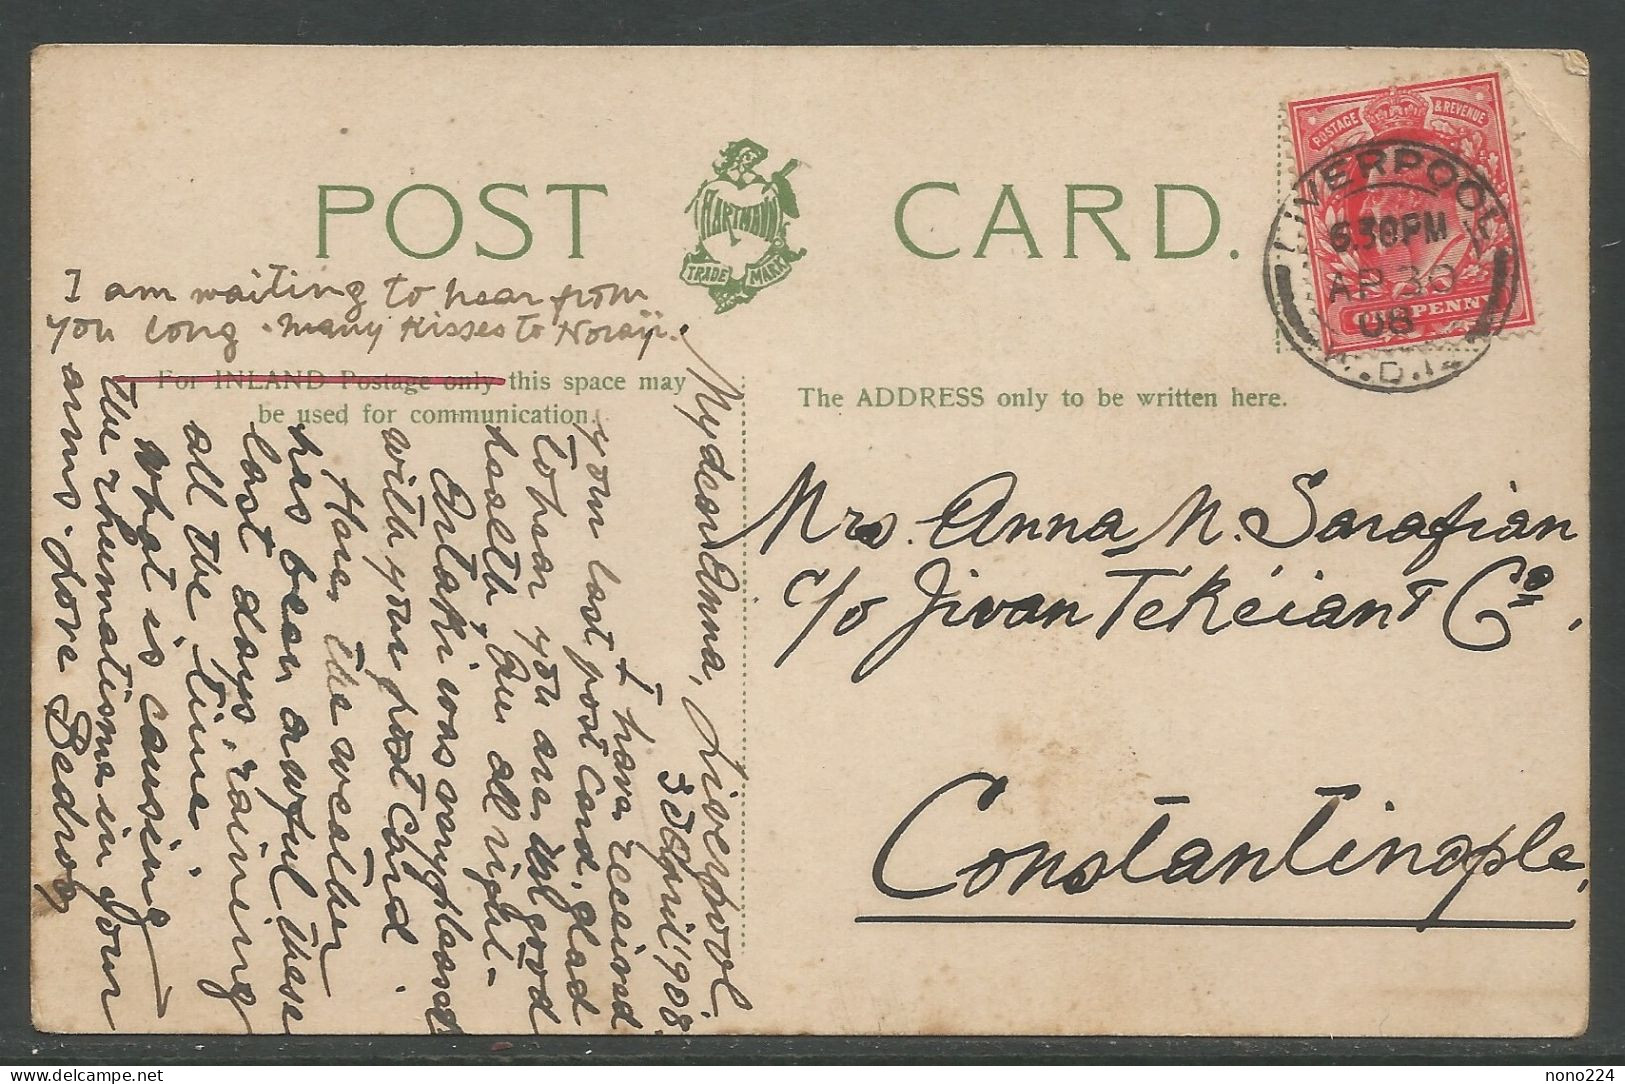 POST CARD.
HARTMANN
TRADE MARK
POSTAGE & REVENUE
ONE PENNY
LIVERPOOL
6.30PM
AP 30
08
For INLAND Postage only this space may
be used for communication.
The ADDRESS only to be written here.
Mrs. Anna M. Sarafian
c/o Jivan Tekéian & Co,
Constantinople.
Liverpool
30 April 1908.
My dear Anna,
I have received
your last post card, glad
to hear you are in good
health, am all right.
Artaki was very pleased
with your post card.
Here, the weather
has been awful these
last days, raining
all the time.
What is causing
the rhumatisme in your
arms. Love Bedros
I am waiting to hear from
you long. Many kisses to Noraji.
nono224